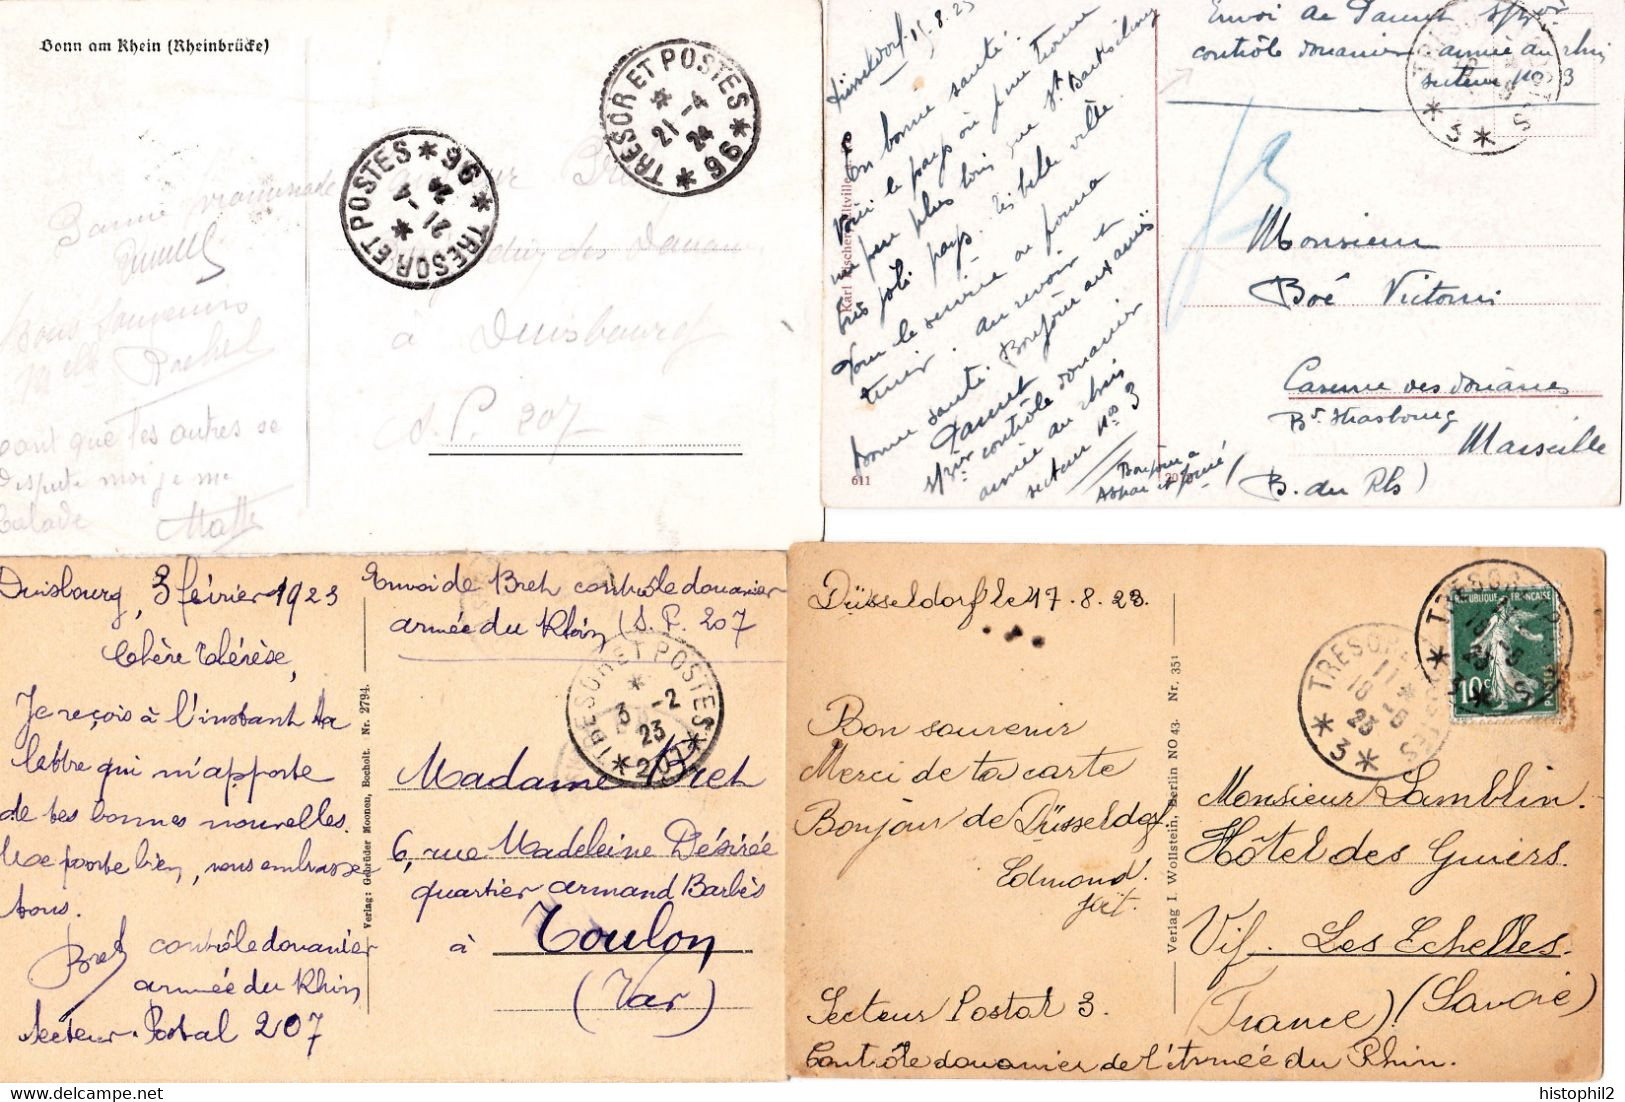 Bonn am Rhein (Rheinbrücke)
TRESOR ET POSTES * 96 *
21 -4
24
TRESOR ET POSTES * 96 *
21 -4
24
Bonne promenade
Bons Souvenirs
Melle Rachel
des Douanes
à Duisbourg
S. P. 207
que les autres se
Dispute moi je me
Balade
Düsseldorf. 15.8.23
En bonne santé.
Voici le pays où je me trouve
un peu plus loin que St Barthélemy
très joli pays. très belle ville.
Au revoir et
bonne santé. Bonjour aux amis
Pannet
contrôle douanier
armée du rhin
secteur No 3
Bonjour à
Karl
611
Envoi de Pannet
contrôle douanier armée du rhin
secteur No 3
* 3 *
Monsieur
Boé Victorin
Caserne des douanes
Bd Strasbourg
Marseille
(B. du Rh)
Duisbourg, 3 février 1923
Chère Thérèse,
Je reçois à l'instant ta
lettre qui m'apporte
de tes bonnes nouvelles.
Me porte bien, vous embrasse
tous.
Bret contrôle douanier
armée du Rhin
Secteur-Postal 207
Verlag: Gebrüder Moonen, Bocholt. Nr. 2794.
Envoi de Bret contrôle douanier
armée du Rhin (S. P. 207
TRESOR ET POSTES
* 207 *
3 -2
23
Madame Bret
6, rue Madeleine Désirée
quartier armand Barbès
à Toulon
(Var)
Düsseldorf le 17.8.23.
Bon souvenir
Merci de ta carte
Bonjour de Düsseldorf
Edmond.
Secteur Postal 3.
Contrôle douanier de l'Armée du Rhin.
Verlag I. Wollstein, Berlin NO 43- Nr. 351
TRESOR ET POSTES
* 3 *
11
18 -8
23
REPUBLIQUE FRANÇAISE
10c
POSTES
Monsieur Lamblin.
Hôtel des Guiers.
Vif. Les Echelles.
(Savoie)
(France)
histophil2